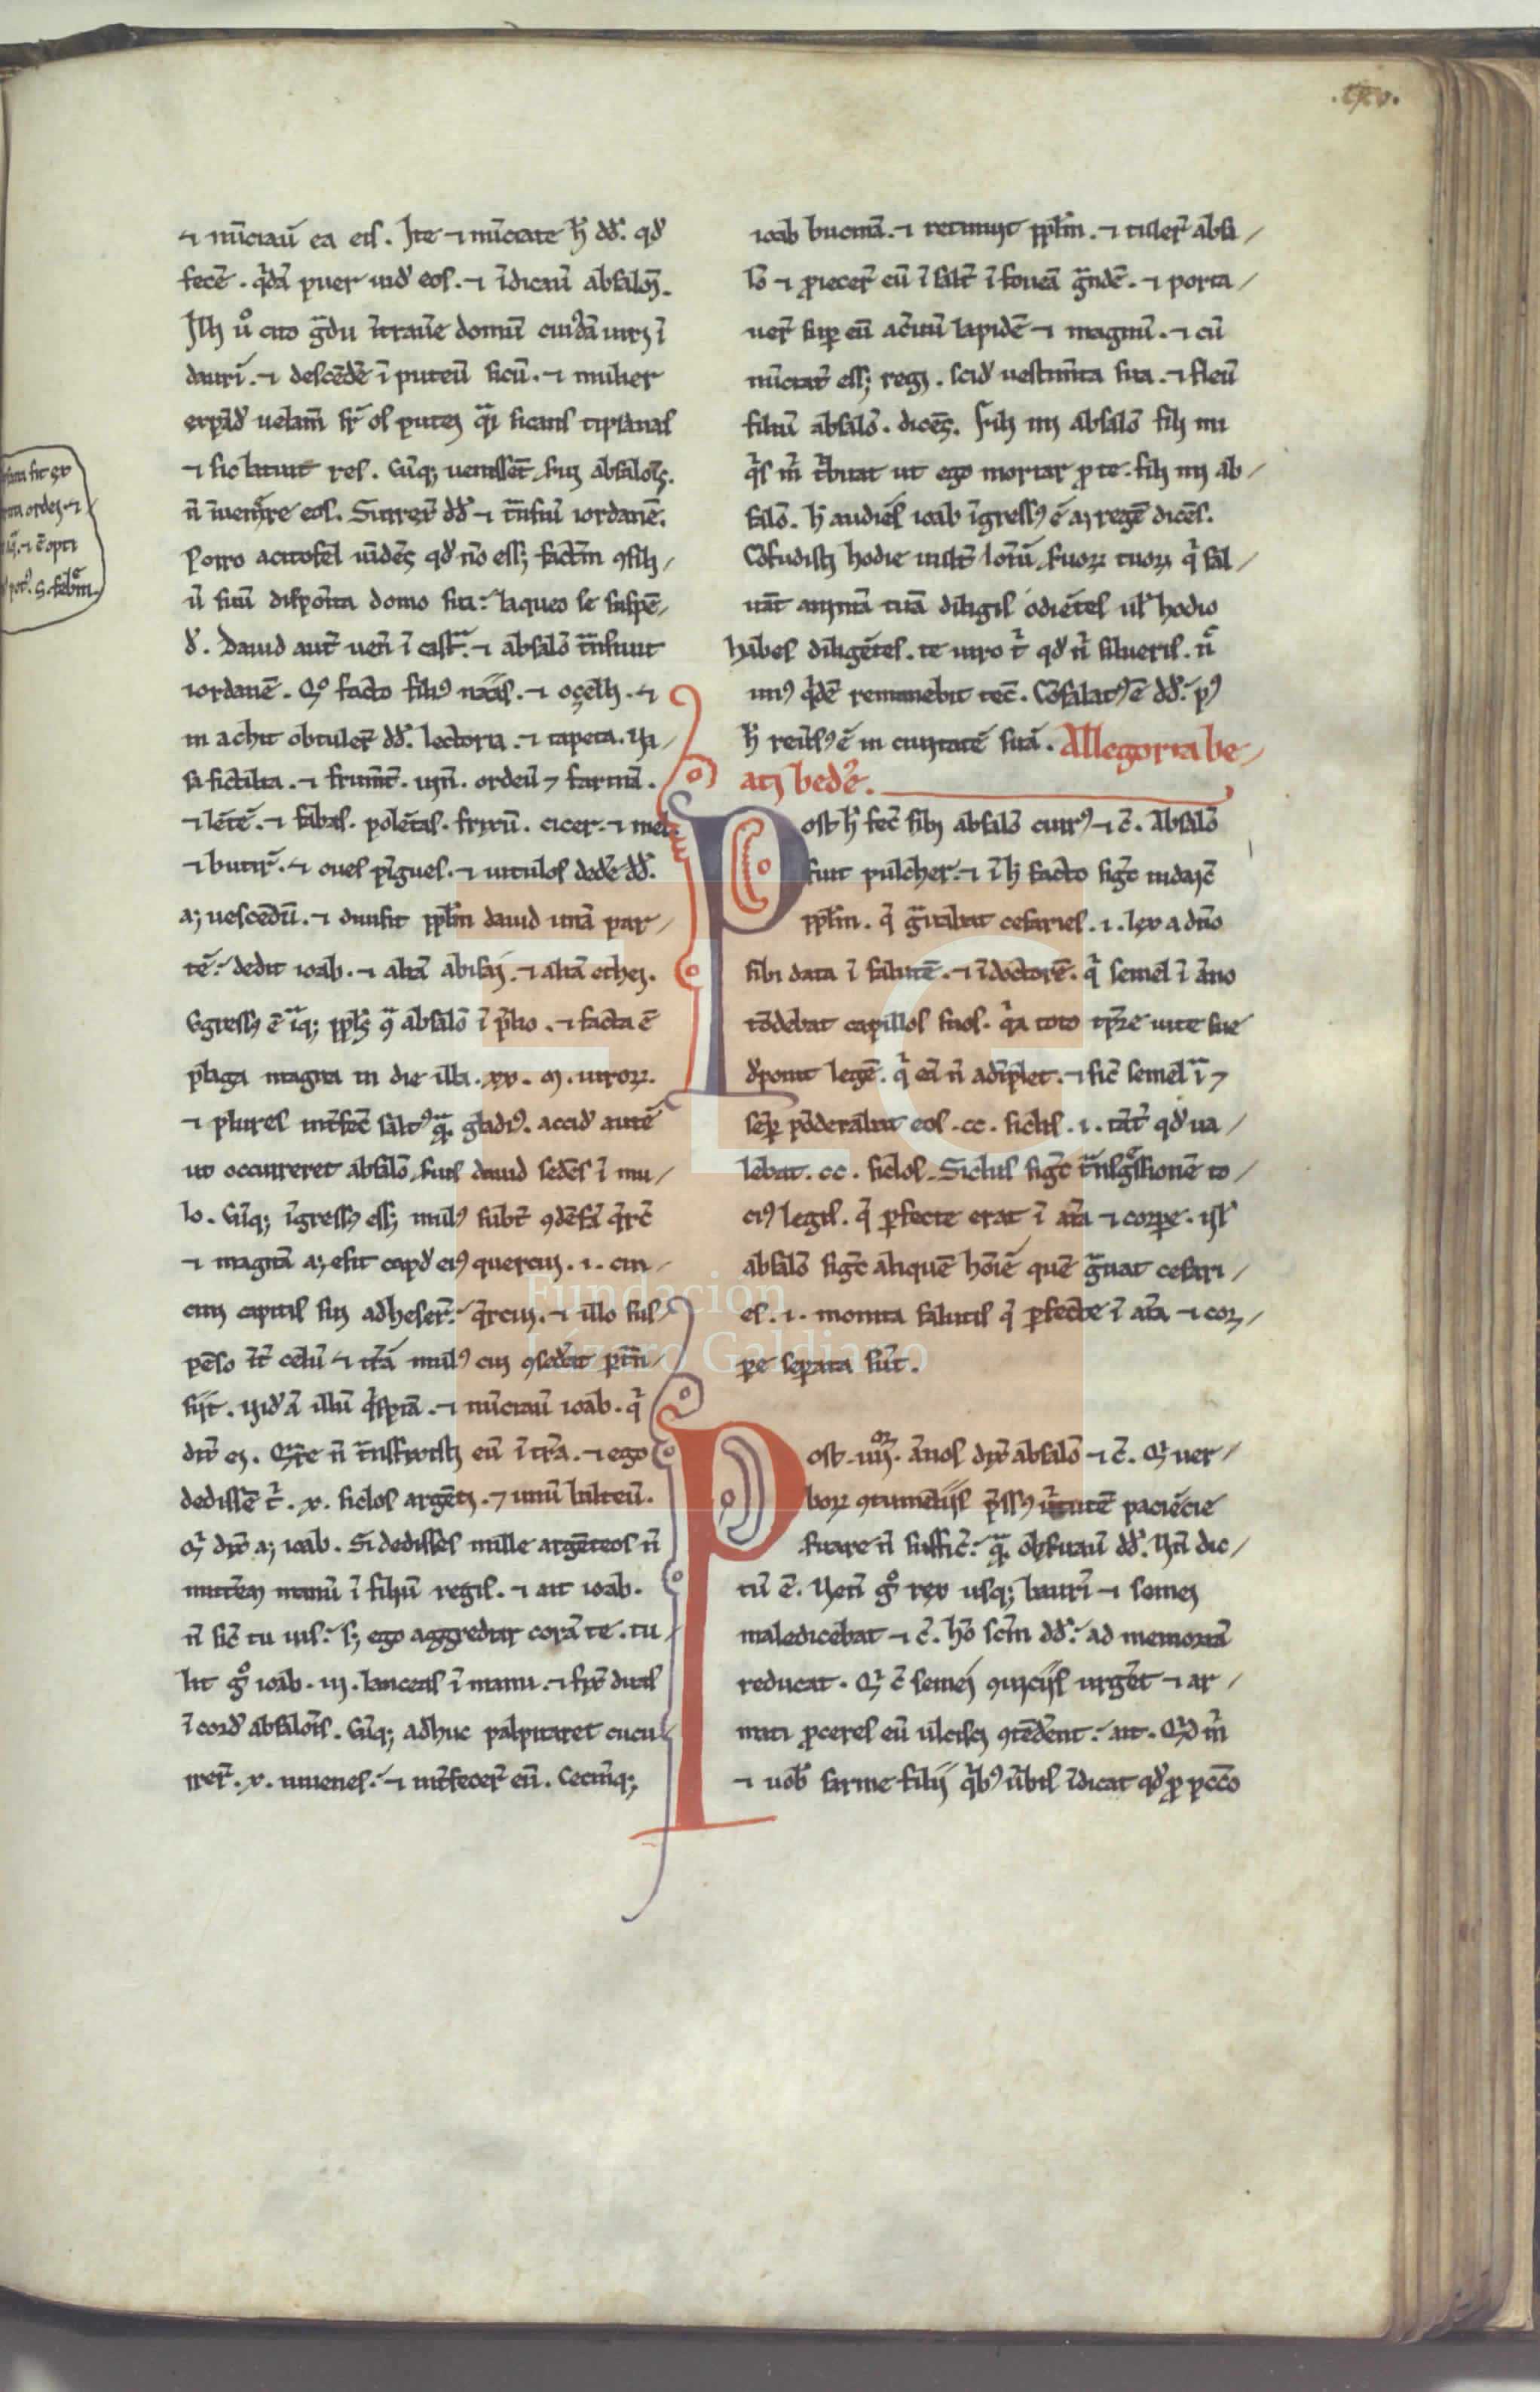 .lxv.
⁊ nu̅ciau̅ ea eis. Ite ⁊ nu̅ciate h̅ dd̅. qd̅
fece̅. q̅da̅ puer uid̅ eos. ⁊ i̅dicau̅ absalo̅.
Ih u̅o cito g̅du i̅traue domu̅ cui̅da̅ uiri i̅
dauri̅. ⁊ desce̅de̅ i̅ puteu̅ sicu̅. ⁊ mulier
expa̅d̅ uelam̅ sr̅ os putei q̅i siccans tipsanas
⁊ sic latuit res. Cu̅q; uenisse̅t sui absalo̅is.
n̅ i̅uen̅re eos. Surrex̅ dd̅ ⁊ t̅nsiu̅ iordane̅.
Porro acitofel uide̅s qd̅ no̅ ess; fact̅m ↄsili/
u̅ suu̅ disposi̅ta domo sua: laqueo se suspe̅/
d̅. Dauid aut̅ uen̅ i̅ cast̅. ⁊ absalo̅ t̅nsiuit
iordane̅. Q̅o facto filiꝰ naas. ⁊
machir obtuler̅ dd̅. lectoria. ⁊ tapeta. ua/
sa fictilia. ⁊ frum̅t. uin̅. ordeu̅ ⁊ farina̅.
⁊ le̅te̅. ⁊ fabas. pole̅tas. frixu̅. cicer. ⁊ mel
⁊ butir̅. ⁊ oues pi̅gues. ⁊ uitulos dede̅ dd̅.
a; uesce̅du̅. ⁊ diuisit ppl̅m dauid una̅ par/
te̅: dedit ioab. ⁊ alia̅ abisai. ⁊ alia̅ ethei.
Egressꝰ e̅ i̅q; ppl̅s ↄ̅ absalo̅ i̅ p̅lio. ⁊ facta e̅
plaga magna in die illa. xx. m. uiroꝝ.
⁊ plures int̅fec̅ saltꝰ q̅. gladiꝰ. accid̅ aute̅
ut occurreret absalo̅ suis dauid sede̅s i̅ mu/
lo. Cu̅q; i̅gressꝰ ess; mulꝰ subt̅ ↄde̅sa̅ q̅rc̅
⁊ magna̅ a; esit capd̅ eiꝰ quercui. .i. cin/
cini capitis sui adheser̅: q̅rcui. ⁊ illo sus/
pe̅so i̅t̅ celu̅ ⁊ t̅ra̅ mulꝰ cui ↄsed̅at p̅t̅n/
siit. uid̅ a̅ illu̅ q̅spia̅. ⁊ nu̅ciau̅ ioab. q̅
dix̅ ei. Q̅re n̅ t̅nsfixisti eu̅ i̅ t̅ra. ⁊ ego
dedisse̅ t̅. x. siclos arge̅ti. ⁊ unu̅ balteu̅.
Q̅ dix̅ a; ioab. Si dedisses mille arge̅teos n̅
mitt̅em manu̅ i̅ filiu̅ regis. ⁊ ait ioab.
n̅ sic̅ tu uis: s; ego aggrediar cora̅ te. tu/
lit g̊ ioab. iii. lanceas i̅ manu. ⁊ fix̅ duas
i̅ cord̅ absalo̅is. Cu̅q; adhuc palpitaret cucu/
rrer̅. x. iuuenes: ⁊ int̅fecer̅ eu̅. Cecinitq;
ioab bucina̅. ⁊ retinuit ppl̅m. ⁊ tuler̅ absa/
lo̅ ⁊ p̅iecer̅ eu̅ i̅ salt̅ i̅ fouea̅ g̅nde̅. ⁊ porta/
uer̅ sup̅ eu̅ aceruu̅ lapide̅ ⁊ magnu̅. ⁊ cu̅
nu̅ciat̅ ess; regi. scid̅ uestim̅ta sua. ⁊ fleu̅
filiu̅ absalo̅. dice̅s. Fili mi absalo̅ fili mi
q̅s m̅ t̅buat ut ego moriar p̅ te. fili mi ab/
salo̅. h̅ audie̅s ioab i̅gressꝰ e̅ a; rege̅ dice̅s.
Co̅fudisti hodie uult̅ o̅iu̅ suoꝝ tuoꝝ q̅ sal/
ua̅t anima̅ tua̅ diligis odie̅tes ul̅ hodio
habes dilige̅tes. te iuro t̅ qd̅ n̅ silueris. n̅
unꝰ q̅de̅ remanebit tec̅. Co̅solatꝰ e̅ dd̅: pꝰ
h̅ reu̅sꝰ e̅ in ciuitate̅ sua̅. Allegoria be/
ati bede̅.
Post h̅ fec̅ sibi absalo̅ currꝰ ⁊ c̅. Absalo̅
fuit pulcher. ⁊ i̅ h̅ facto sigt̅ iudaic̅
ppl̅m. q̅ g̅uabat cesaries. .i. lex a dn̅o
sibi data i̅ salute̅. ⁊ i̅ doctore̅. q̅ semel i̅ a̅no
to̅debat capillos suos. q̅a toto tp̅re uite sue
d̅ponit lege̅. q̅ ea̅ n̅ adi̅plet. ⁊ sic̅ semel i̅ ⁊
sep̅ po̅derabat eos .cc. siclis. .i. ta̅t̅ qd̅ ua/
lebat .cc. siclos. Siclus sigt̅ t̅nsg̅ssione̅ to/
ciꝰ legis. q̅ p̅fecte erat i̅ ai̅a ⁊ corpe. ul̅
absalo̅ sigt̅ alique̅ ho̅ie̅ que̅ g̅uat cesari/
es. .i. monita salutis q̅ p̅fecte i̅ ai̅a ⁊ cor/
pe separata su̅t.
Post .iiiior. a̅nos dix̅ absalo̅ ⁊ c̅. Q̅ uer/
boꝝ ↄtumeliis p̅ssꝰ u̅tute̅ pacie̅cie
s̅uare n̅ suffic̅: q̅. obs̅uau̅ dd̅. Un̅ dic/
tu̅ e̅. Ueni̅ g̊ rex usq; bauri̅ ⁊ semei
maledicebat ⁊ c̅. ho̅ sc̅m dd̅: ad memoria̅
reducat. Q̅ c̅ semei ↄuiciis urge̅t ⁊ ar/
mati p̅ceres eu̅ ulcisci ↄte̅de̅ent: ait. Q̅d m̅
⁊ uob̅ saruie filii q̅bꝰ u̅bis i̅dicat qd̅ p̅ pcc̅o